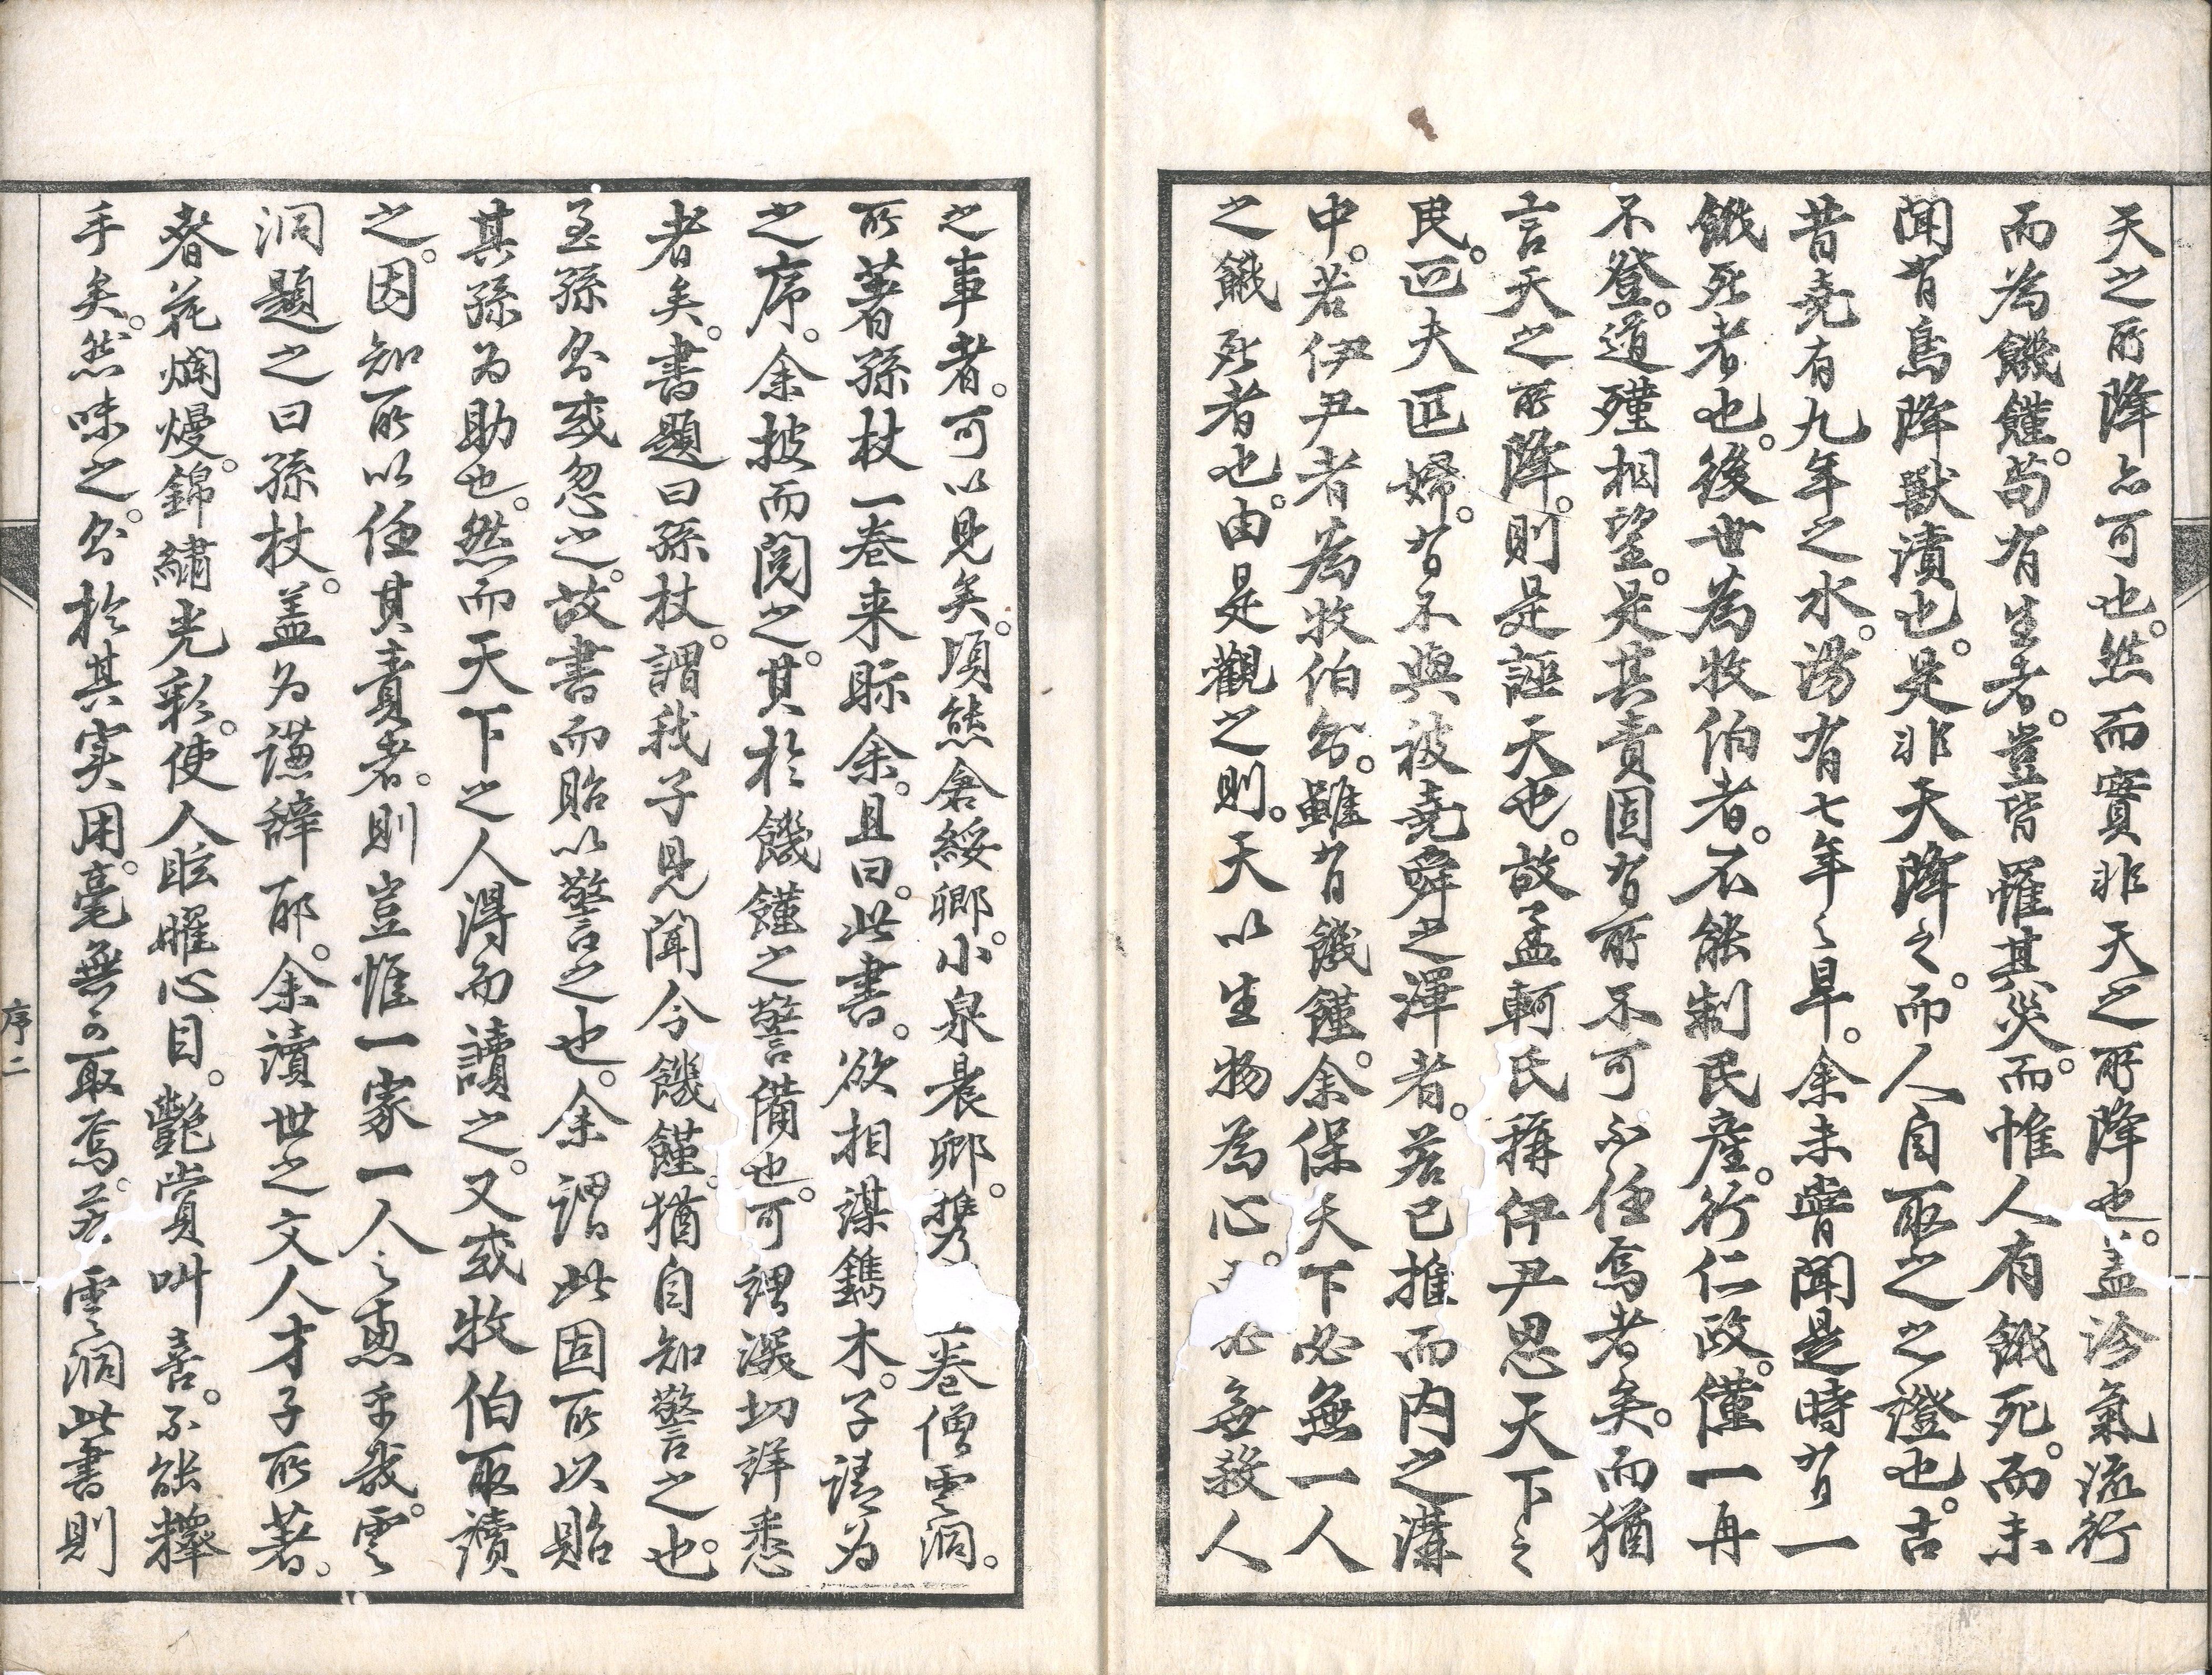 天之所降亦可也。然而實非天之所降也。蓋沴氣流行
而為饑饉。苟有生者。豈皆罹其災。而惟人有餓死。而未
聞有鳥降獸漬也。是非天降之。而人自取之之證也。古
昔堯有九年之水。湯有七年之旱。余未嘗聞是時有一
餓死者也。後世為牧伯者。不能制民産。行仁政。僅一冉
不登。道殣相望。是其責固有所不可不任焉者矣。而猶
言天之所降。則是誣天也。故孟軻氏稱伊尹思天下之
民。匹夫匹婦。有不與被堯舜之澤者。若己推而内之溝
中。若伊尹者為牧伯尒。雖有饑饉。余保天下必無一人
之餓死者也。由是觀之則。天以生物為心。必無殺人
之事者。可以見矣。頃熊倉綏卿。小泉晨卿。携一卷僧雲洞。
所著孫杖一卷来眎余。且曰。此書。欲相謀鐫木。子請為
之序。余披而閲之。其於饑饉之警備也。可謂深切詳悉
者矣。書題曰孫杖。謂我子見聞今饑饉。猶自知警之也。
至孫尒或忽之。故書而貽以警之也。余謂此固所以貽
其孫為助也。然而天下之人得而讀之。又或牧伯取讀
之。因知所以任其責者。則豈惟一家一人之惠乎哉。雲
洞題之曰孫杖。蓋為謙辭耶。余讀世之文人才子所著。
春花爛熳。錦繡光彩。使人眩耀心目。艶賞叫喜。不能釋
手矣。然味之。尒於其実用。毫無可取焉。若雲洞此書則
序二